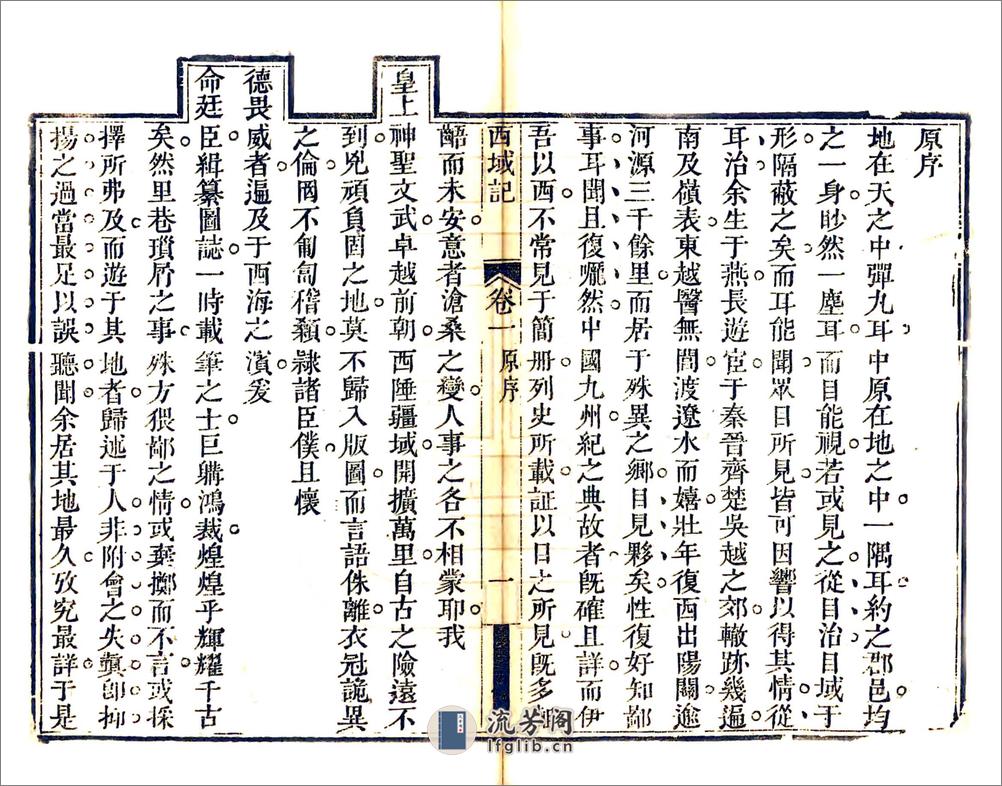 原序
地在天之中彈九耳中原在地之中一隅耳約之郡邑均
之一身眇然一塵耳而目能視若或見之從目治目域于
形隔蔽之矣而耳能聞眾目所見皆可因響以得其情從
耳治余生于燕長遊宦于秦晉齊楚吳越之郊轍跡幾遍
南及嶺表東越醫無閭渡遼水而嬉壯年復西出陽關途
河源三千餘里而居于殊異之鄉目見夥矣性復好知鄙
事耳聞且復囇然中國九州紀之典故者旣確且詳而伊
吾以西不常見于簡册列史所載証以日之所見旣多
西域記
卷一
原序
一
齬而未安意者滄桑之變人事之各不相蒙耶我
皇上神聖文武卓越前朝西陲疆域開擴萬里自古之險遠不
到兇頑負固之地莫不歸入版圖而言語侏離衣冠詭異
之倫罔不匍匐稽顙隸諸臣僕且懷
德畏威者遍及于西海之濱爰
命廷臣緝纂圖誌一時載筆之士巨購鴻裁煌煌乎輝耀千古
矣然里巷瑣屑之事殊方猥鄙之情或棄擲而不言或採
擇所弗及而遊于其地者歸述于人非附會之失眞卽抑
揚之過當最足以誤聽聞余居其地最久攷究最詳于是
流芳閣
lfglib.cn